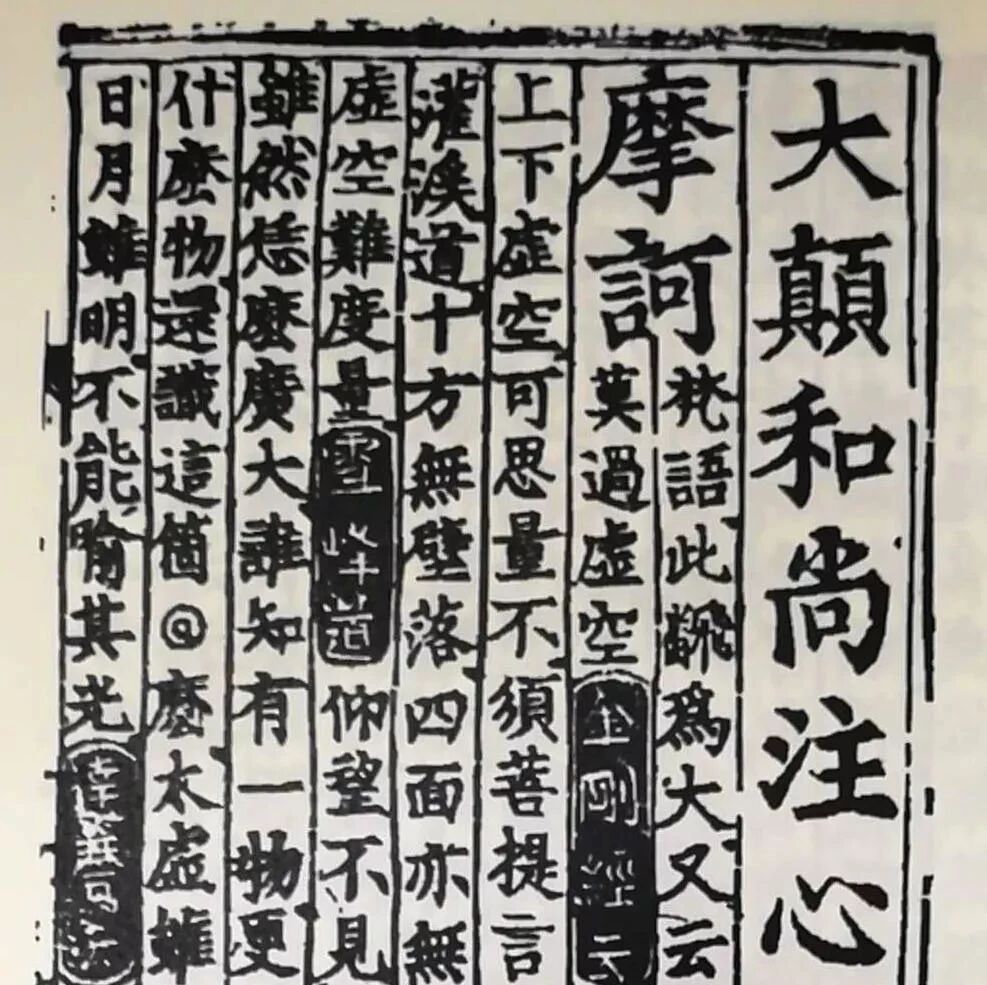 大顛和尚注心
摩訶
梵語此飜爲大又云
莫過虛空金剛經云
上下虛空可思量不須菩提言
灌溪道十方無壁落四面亦無
虛空難度量雪峰道仰望不見
雖然恁麼廣大誰知有一物更
什麼物還識這箇@麼太虛雖
日月雖明不能喻其光